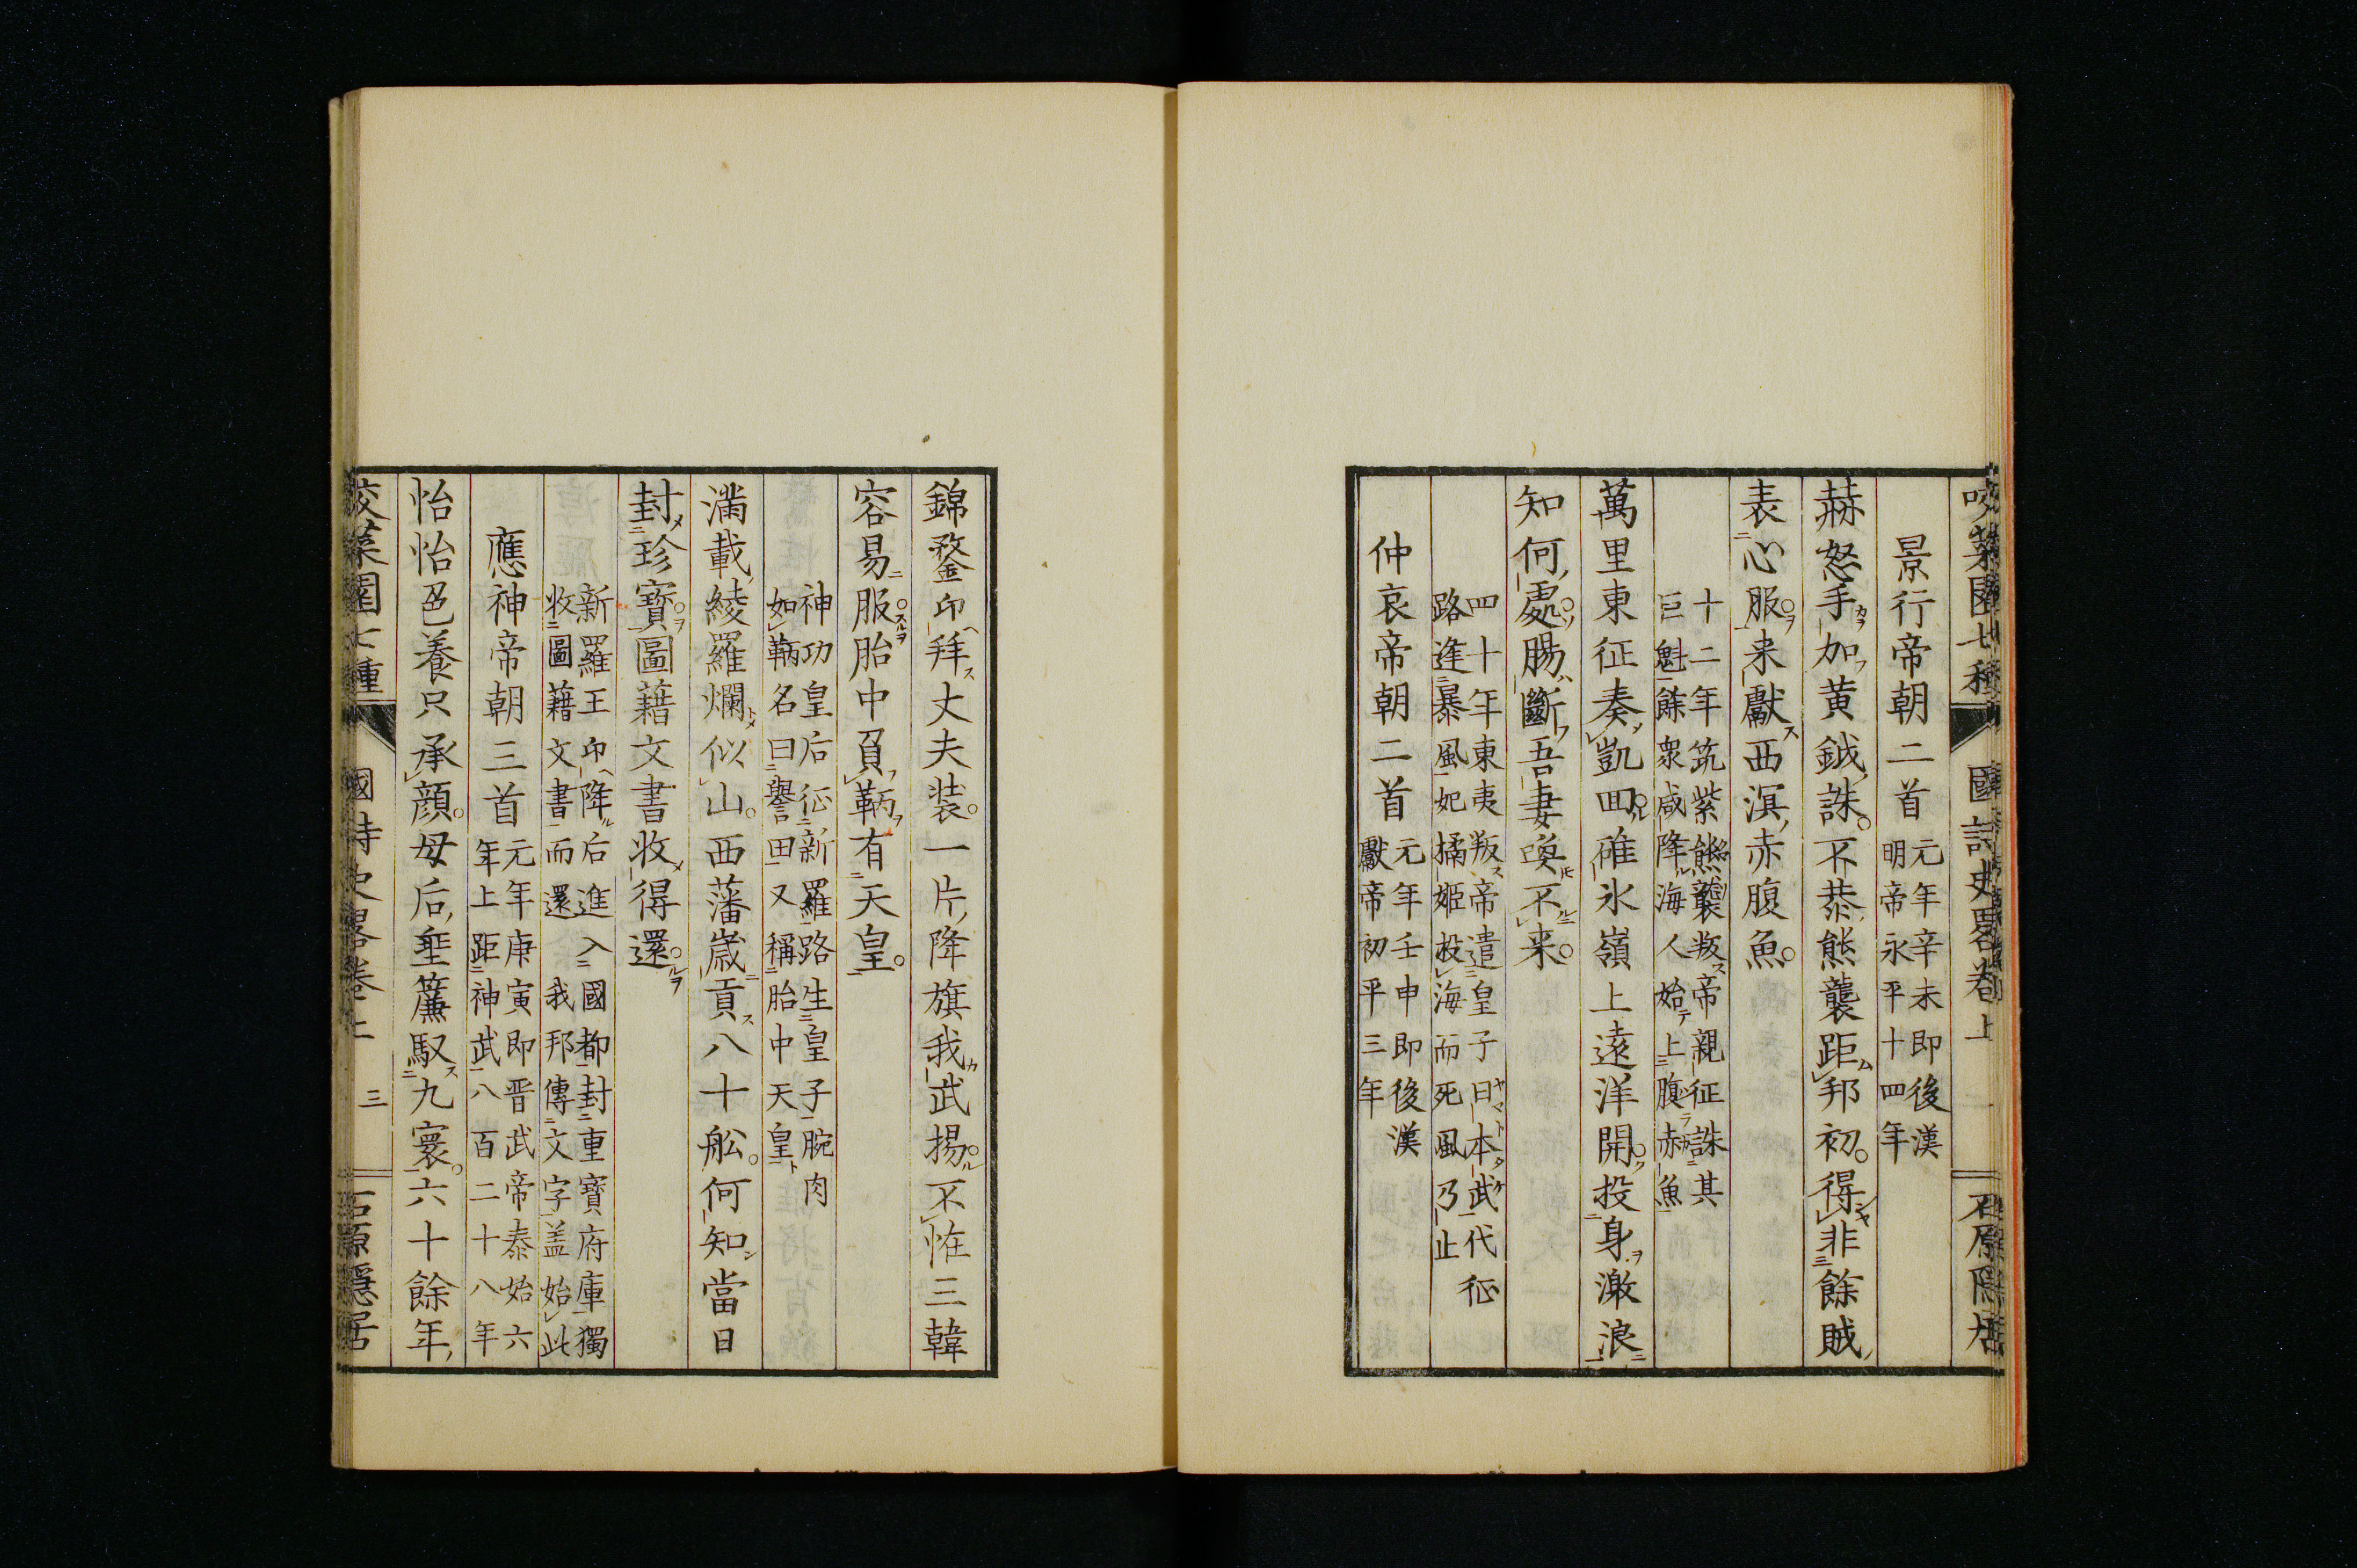 咬菜園七種 國詩史畧卷上 二 石原隱居
景行帝朝二首 元年辛未即後漢
明帝永平十四年
赫怒手加黄鉞誅。不恭熊襲距邦初。得非餘賊
表心服来獻西溟赤腹魚。
十二年筑紫熊襲叛帝親征誅其
巨魁餘衆咸降海人始上腹赤魚
萬里東征奏凱回碓氷嶺上遠洋開投身激浪
知何處腸斷吾妻喚不来。
四十年東夷叛帝遣皇子日本武代征
路逢暴風妃橘姬投海而死風乃止
仲哀帝朝二首 元年壬申即後漢
獻帝初平三年
錦鍪印拜丈夫装。一片降旗我武揚不恠三韓
容易服胎中負鞆有天皇。
神功皇后征新羅路生皇子腕肉
如鞆名曰譽田又稱胎中天皇
滿載綾羅爛似山。西藩歳貢八十舩。何知當日
封珍寶圖藉文書收得還。
新羅王印降后進入國都封重寶府庫獨
收圖藉文書而還我邦傳文字盖始此
應神帝朝三首 元年庚寅即晋武帝泰始六
年上距神武八百二十八年
怡怡色養只承顔。母后垂簾馭九寰。六十餘年
咬菜園七種 國詩史畧卷上 三 石原隱居